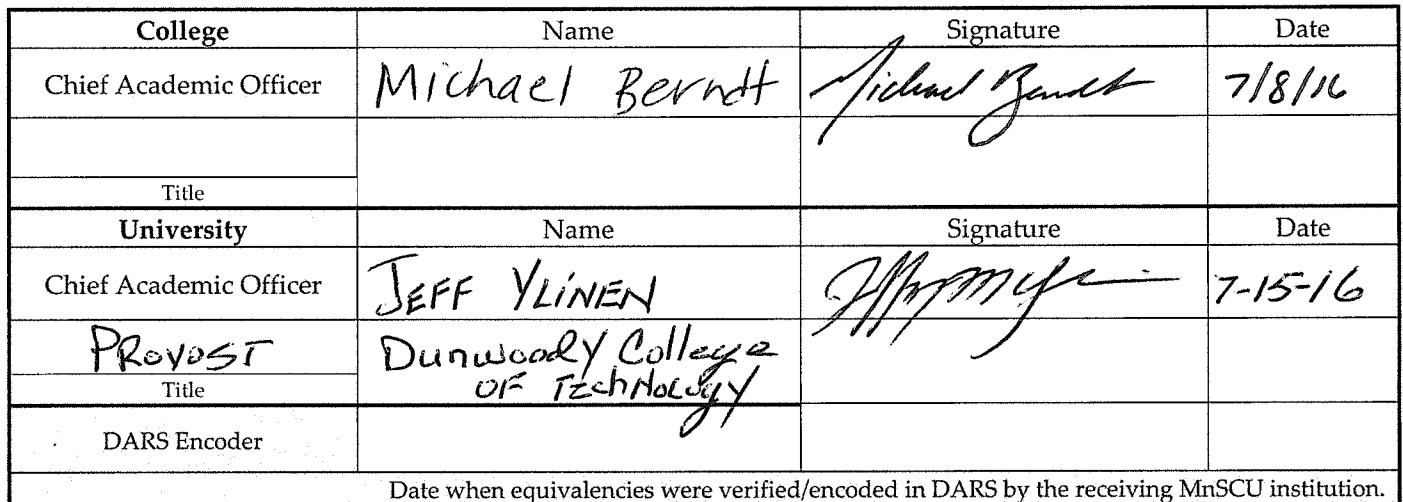 College Name Signature Date
Chief Academic Officer Michael Berndt Michael Berndt 7/8/16
Title
University Name Signature Date
Chief Academic Officer JEFF YLINEN 7-15-16
PROVOST Dunwoody College
OF TechNology
Title
DARS Encoder
Date when equivalencies were verified/encoded in DARS by the receiving MnSCU institution.